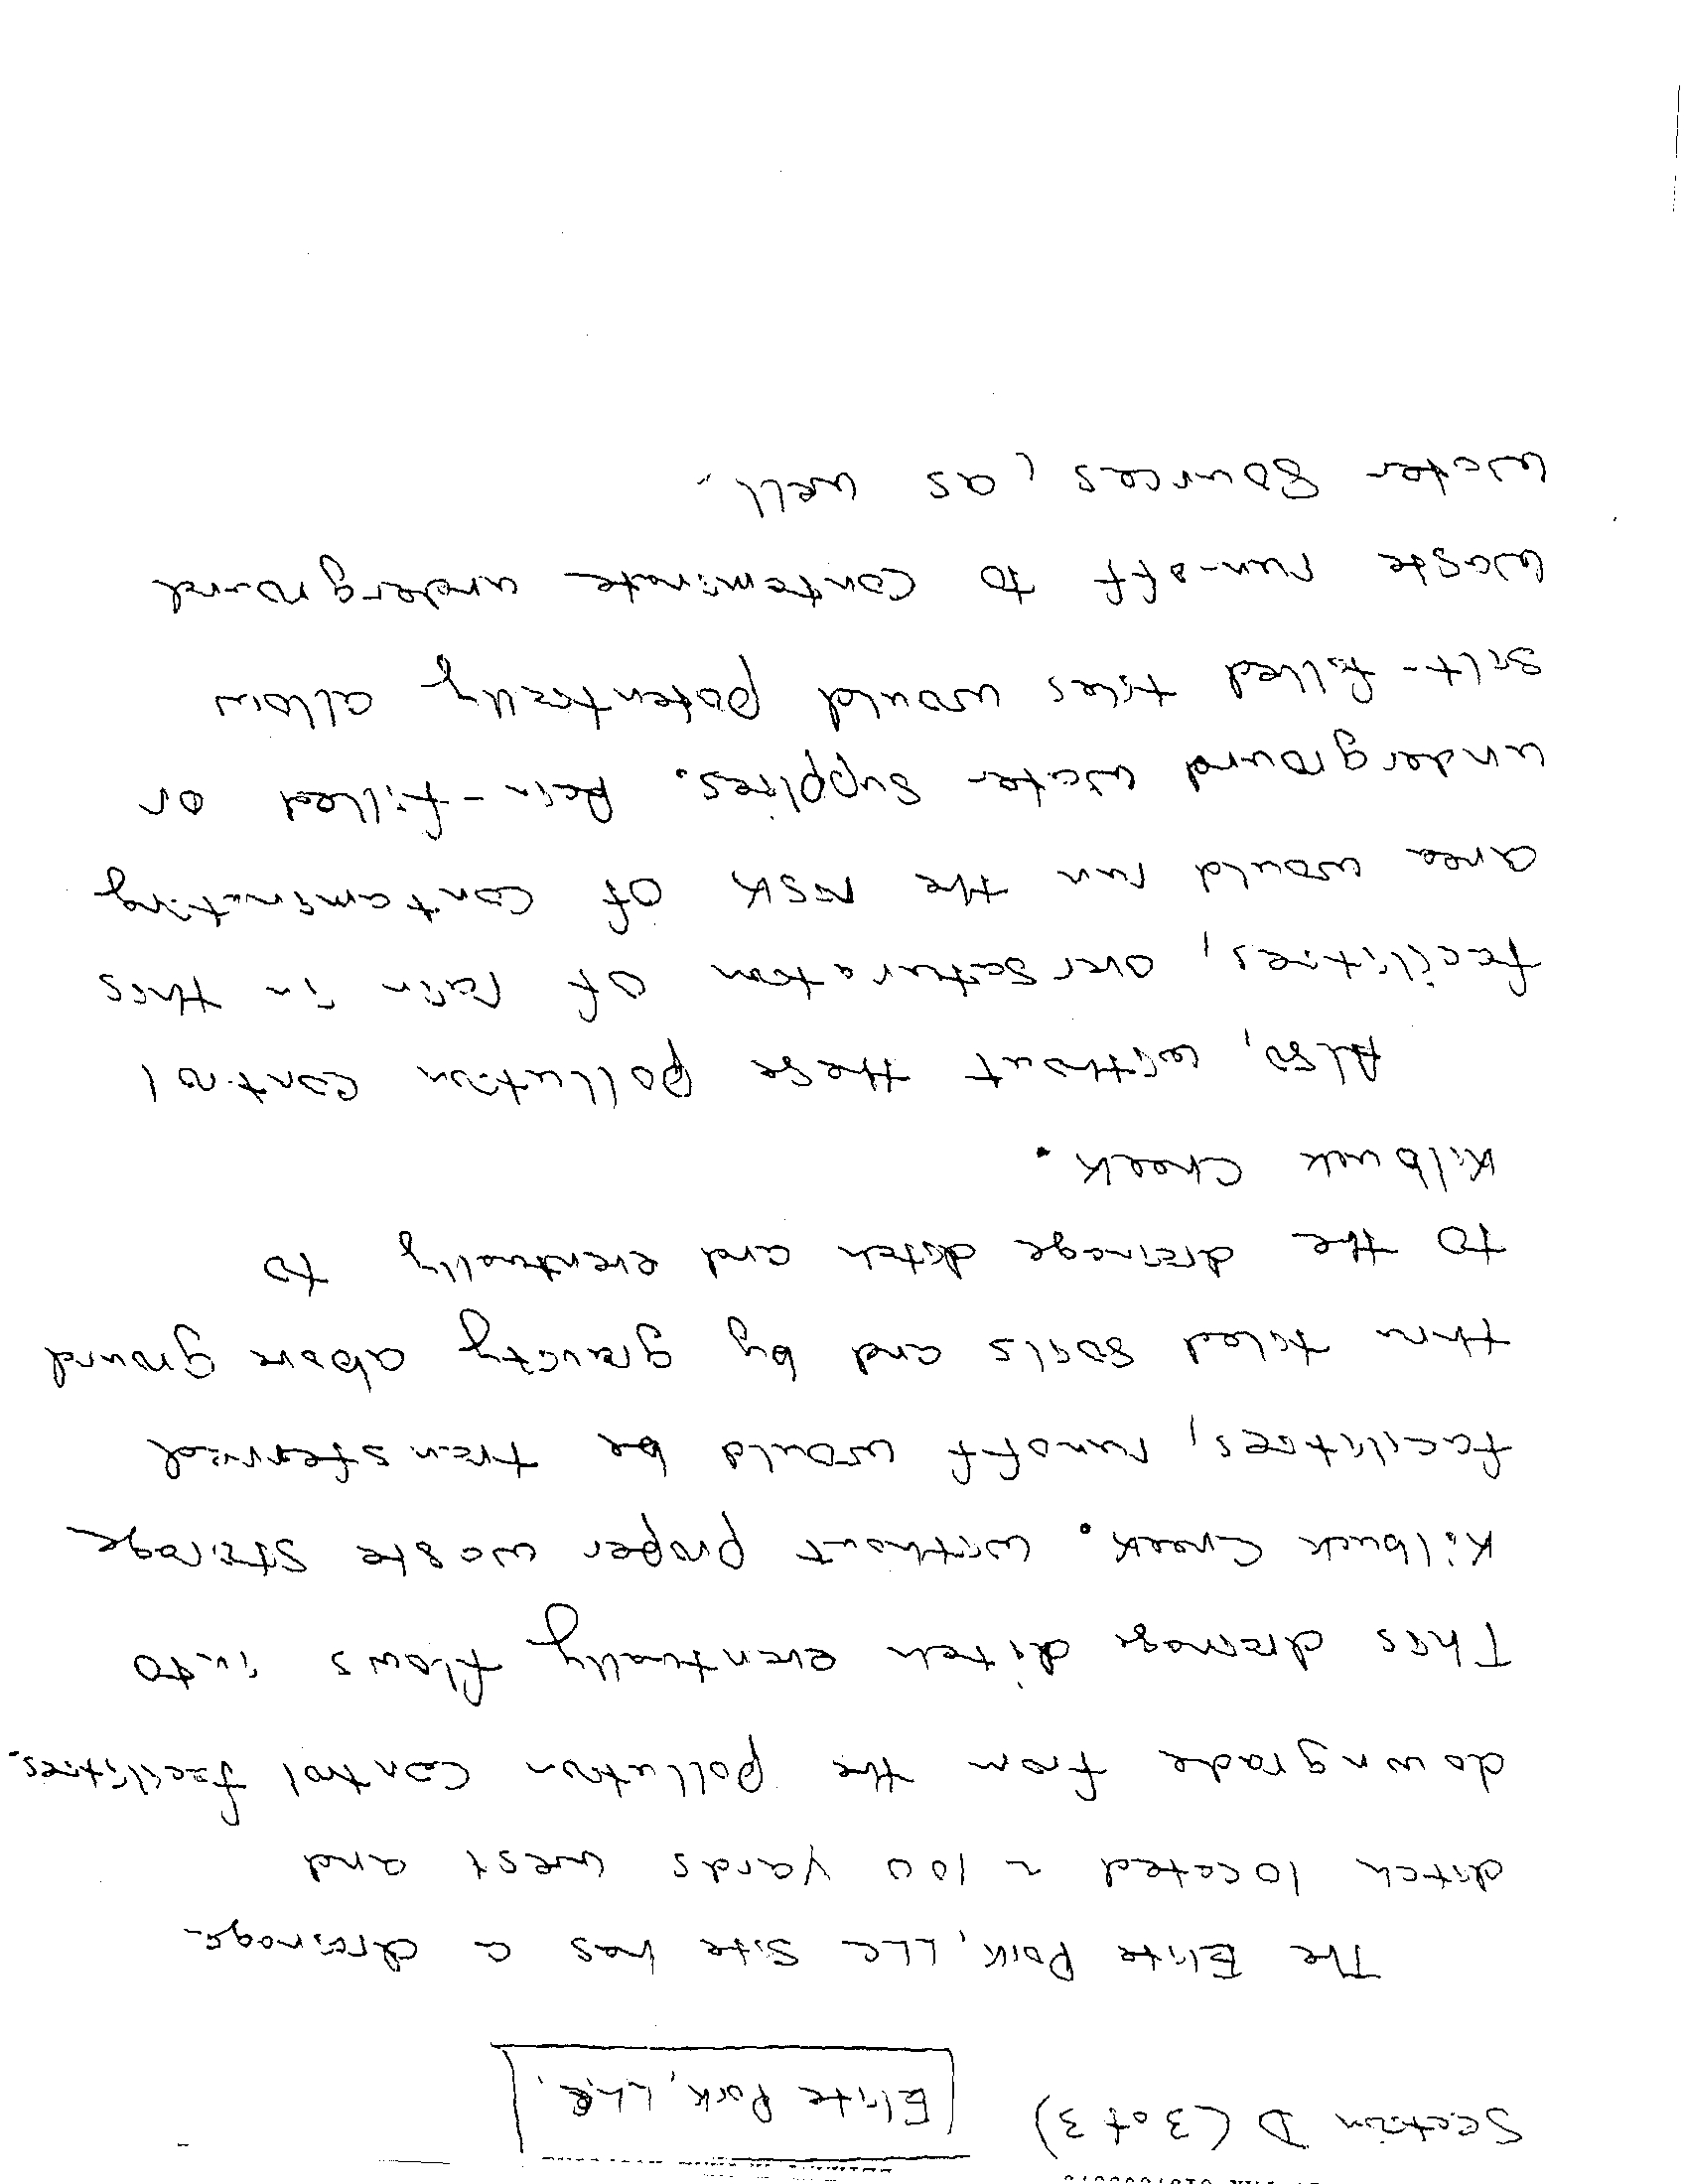 Section D (3 of 3) Elite Pork, LLC.
The Elite Pork, LLC site has a drainage
ditch located ~ 100 yards west and
downgrade from the pollution control facilities.
This drainage ditch eventually flows into
Kilbuck Creek. Without proper waste storage
facilities, runoff would be transferred
thru tiled soils and by gravity above ground
to the drainage ditch and eventually to
Kilbuck Creek.
Also, without these pollution control
facilities, over saturation of rain in this
area would run the risk of contaminating
underground water supplies. Rain-filled or
silt-filled tiles would potentially allow
waste run-off to contaminate underground
water sources, as well.